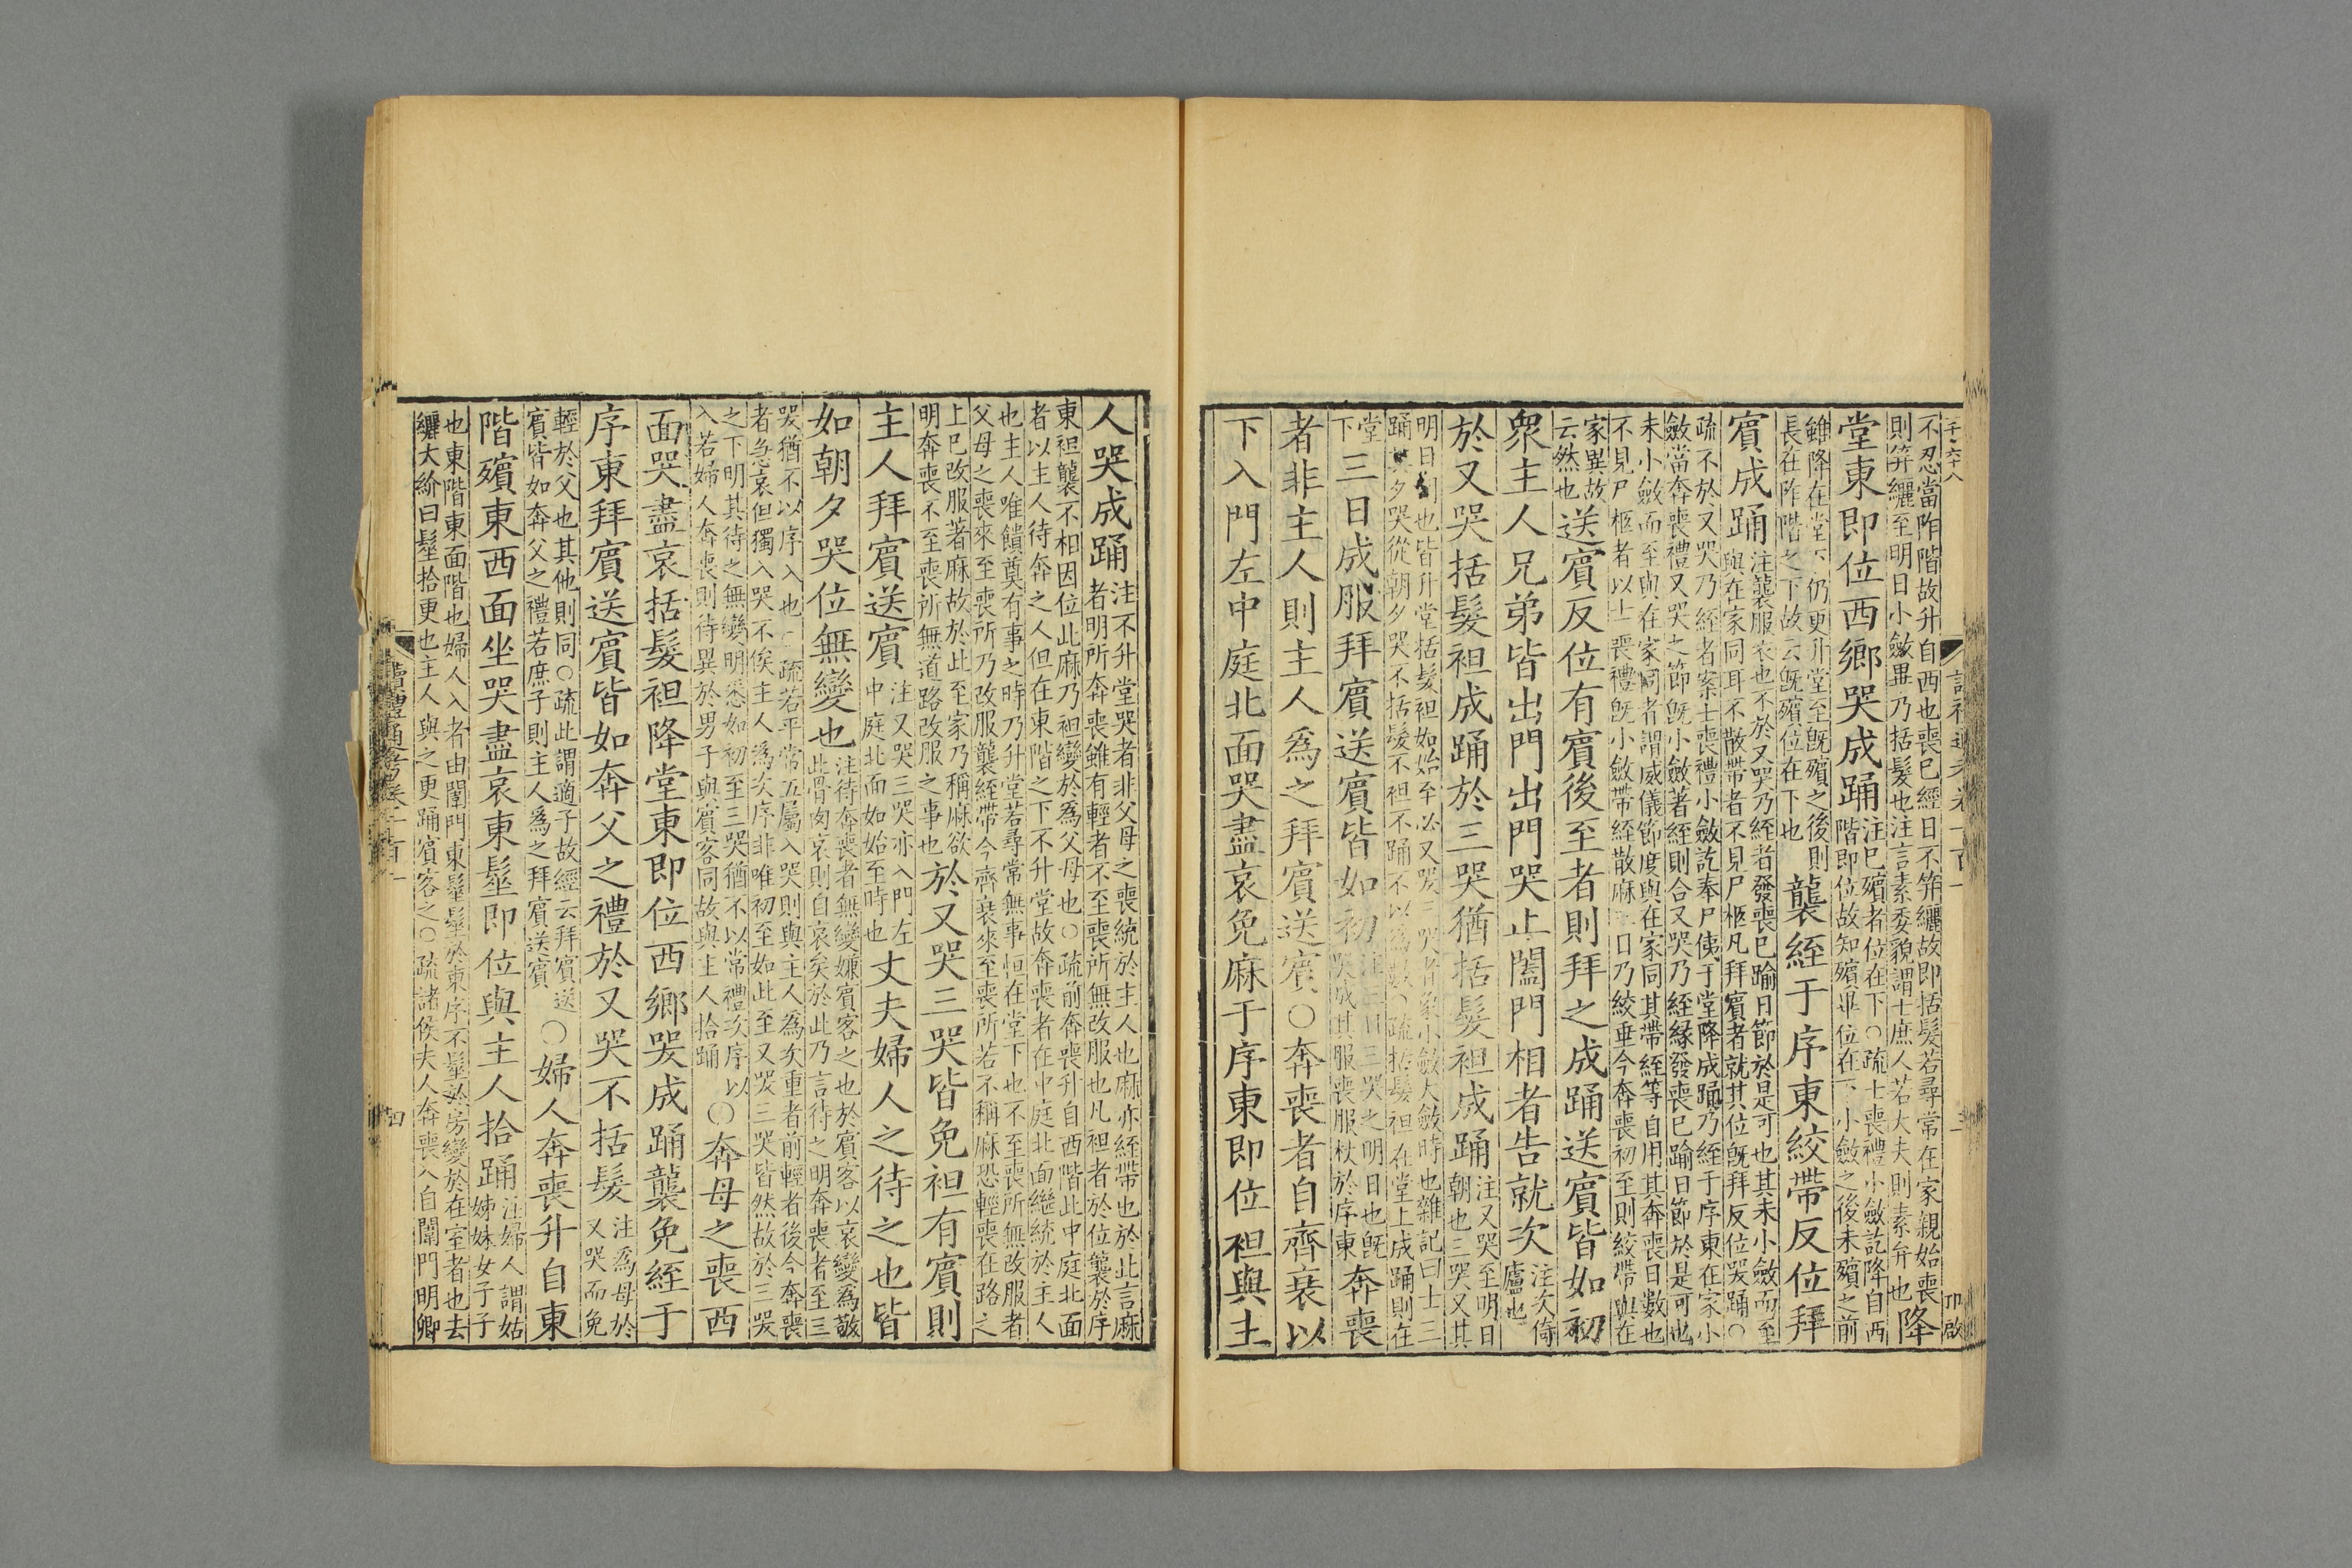 不忍當阼階故升自西也喪已經日不筓纚故即括髮若尋常在家親始喪
則筓纚至明日小斂畢乃括髮也注言素委貌謂士庶人若大夫則素弁也
降
堂東即位西鄉哭成踊
注已殯者位在下○疏士喪禮小斂訖降自西
階即位故知殯畢位在下小斂之後未殯之前
雖降在堂下仍更升堂至旣殯之後則
長在阼階之下故云旣殯位在下也
襲絰于序東絞帶反位拜
賓成踊
注襲服衣也不於又哭乃絰者發喪已踰日節於是可也其未小斂而至
與在家同耳不散帶者不見尸柩凡拜賓者就其位旣拜反位哭踊○
疏不於又哭乃絰者案士喪禮小斂訖奉尸侇于堂降成踊乃絰于序東在家小
斂當奔喪禮又哭之節旣小斂著絰則合又哭乃絰緣發喪已踰日節於是可也
未小斂而至與在家同者謂威儀節度與在家同其帶絰等自用其奔喪日數也
不見尸柩者以士喪禮旣小斂帶絰散麻三日乃絞垂今奔喪初至則絞帶與在
家異故
云然也
送賓反位有賓後至者則拜之成踊送賓皆如初
衆主人兄弟皆出門出門哭止闔門相者告就次
注次倚
廬也
於又哭括髮袒成踊於三哭猶括髮袒成踊
注又哭至明日
朝也三哭又其
明日朝也皆升堂括髮袒如始至必又哭三哭者象小斂大斂時也雜記曰士三
踊其夕哭從朝夕哭不括髮不袒不踊不以爲數○疏括髮袒在堂上成踊則在
堂
下
三日成服拜賓送賓皆如初
注三日三哭之明日也旣
哭成其服喪服杖於序東
奔喪
者非主人則主人爲之拜賓送賓○奔喪者自齊衰以
下入門左中庭北面哭盡哀免麻于序東即位袒與主
人哭成踊
注不升堂哭者非父母之喪統於主人也麻亦絰帶也於此言麻
者明所奔喪雖有輕者不至喪所無改服也凡袒者於位襲於序
東袒襲不相因位此麻乃袒變於爲父母也○疏前奔喪升自西階此中庭北面
者以主人待奔之人但在東階之下不升堂故奔喪者在中庭北面繼統於主人
也主人唯饋奠有事之時乃升堂若尋常無事恒在堂下也不至喪所無改服者
父母之喪來至喪所乃改服襲絰帶今齊衰來至喪所若不稱麻恐輕喪在路之
上已改服著麻故於此至家乃稱麻欲
明奔喪不至喪所無道路改服之事也
於又哭三哭皆免袒有賓則
主人拜賓送賓
注又哭三哭亦入門左
中庭北面如始至時也
丈夫婦人之待之也皆
如朝夕哭位無變也
注待奔喪者無變嫌賓客之也於賓客以哀變爲敬
此骨肉哀則自哀矣於此乃言待之明奔喪者至三
哭猶不以序入也○疏若平常五屬入哭則與主人爲次重者前輕者後今奔喪
者急哀但獨入哭不俟主人爲次序非唯初至如此至又哭三哭皆然故於三哭
之下明其待之無變明悉如初至三哭猶不以常禮次序以
入若婦人奔喪則待異於男子與賓客同故與主人拾踊
○奔母之喪西
面哭盡哀括髮袒降堂東即位西鄉哭成踊襲免絰于
序東拜賓送賓皆如奔父之禮於又哭不括髮
注爲母於
又哭而免
輕於父也其他則同○疏此謂適子故經云拜賓送
賓皆如奔父之禮若庶子則主人爲之拜賓送賓
○婦人奔喪升自東
階殯東西面坐哭盡哀東髽即位與主人拾踊
注婦人謂姑
姊妹女子子
也東階東面階也婦人入者由闈門東髽髽於東序不髽於房變於在室者也去
纚大紒曰髽拾更也主人與之更踊賓客之○疏諸侯夫人奔喪入自闈門明卿
讀禮通考卷一百一
四